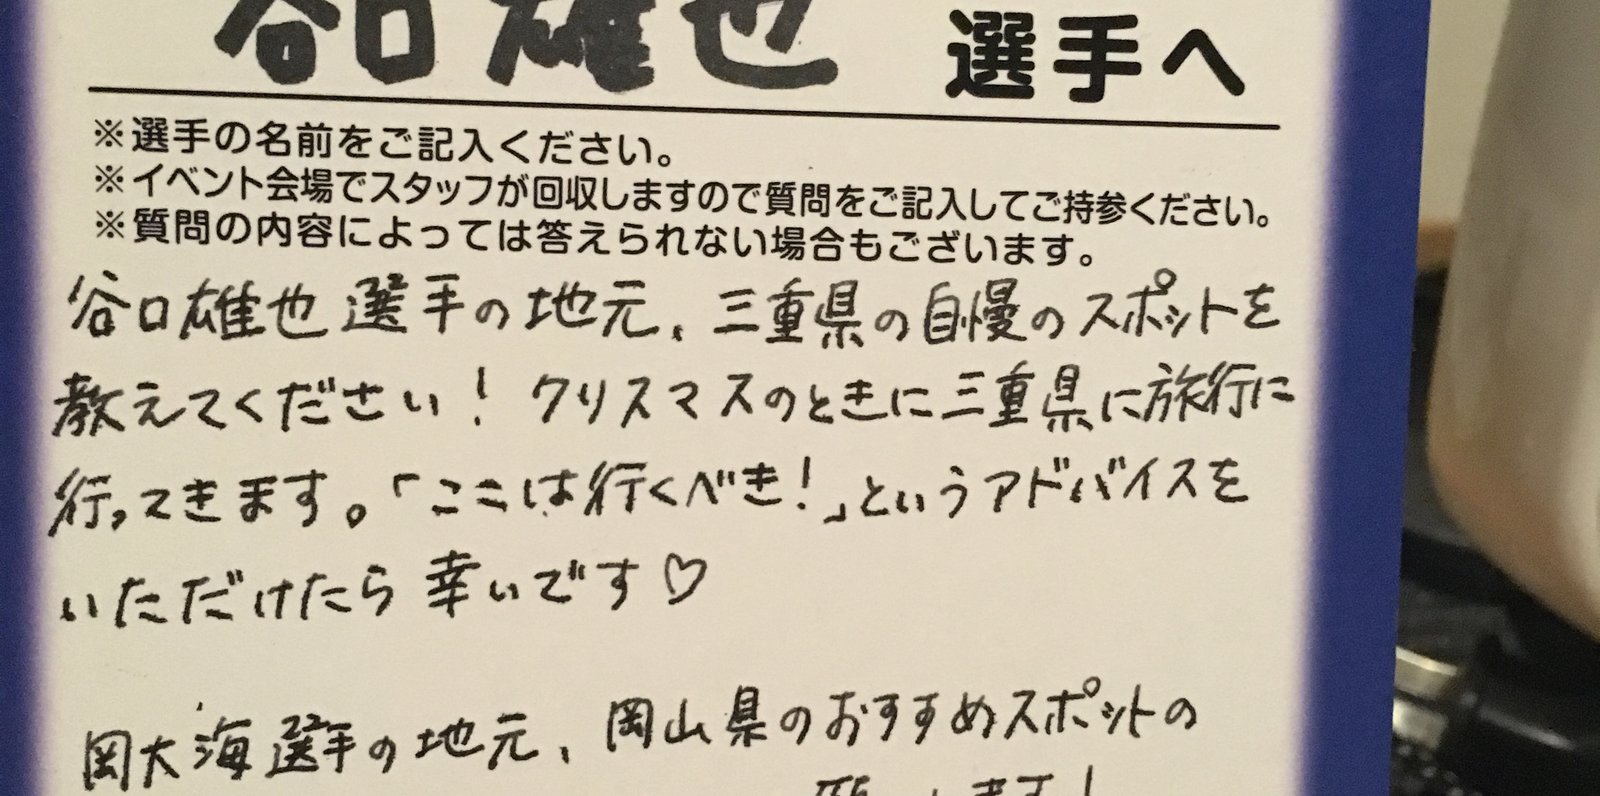 谷口雄也 選手へ
※選手の名前をご記入ください。
※イベント会場でスタッフが回収しますので質問をご記入してご持参ください。
※質問の内容によっては答えられない場合もございます。
谷口雄也選手の地元、三重県の自慢のスポットを
教えてください！クリスマスのときに三重県に旅行に
行ってきます。「ここは行くべき！」というアドバイスを
いただけたら幸いです♡
岡大海選手の地元、岡山県のおすすめスポットの
します！